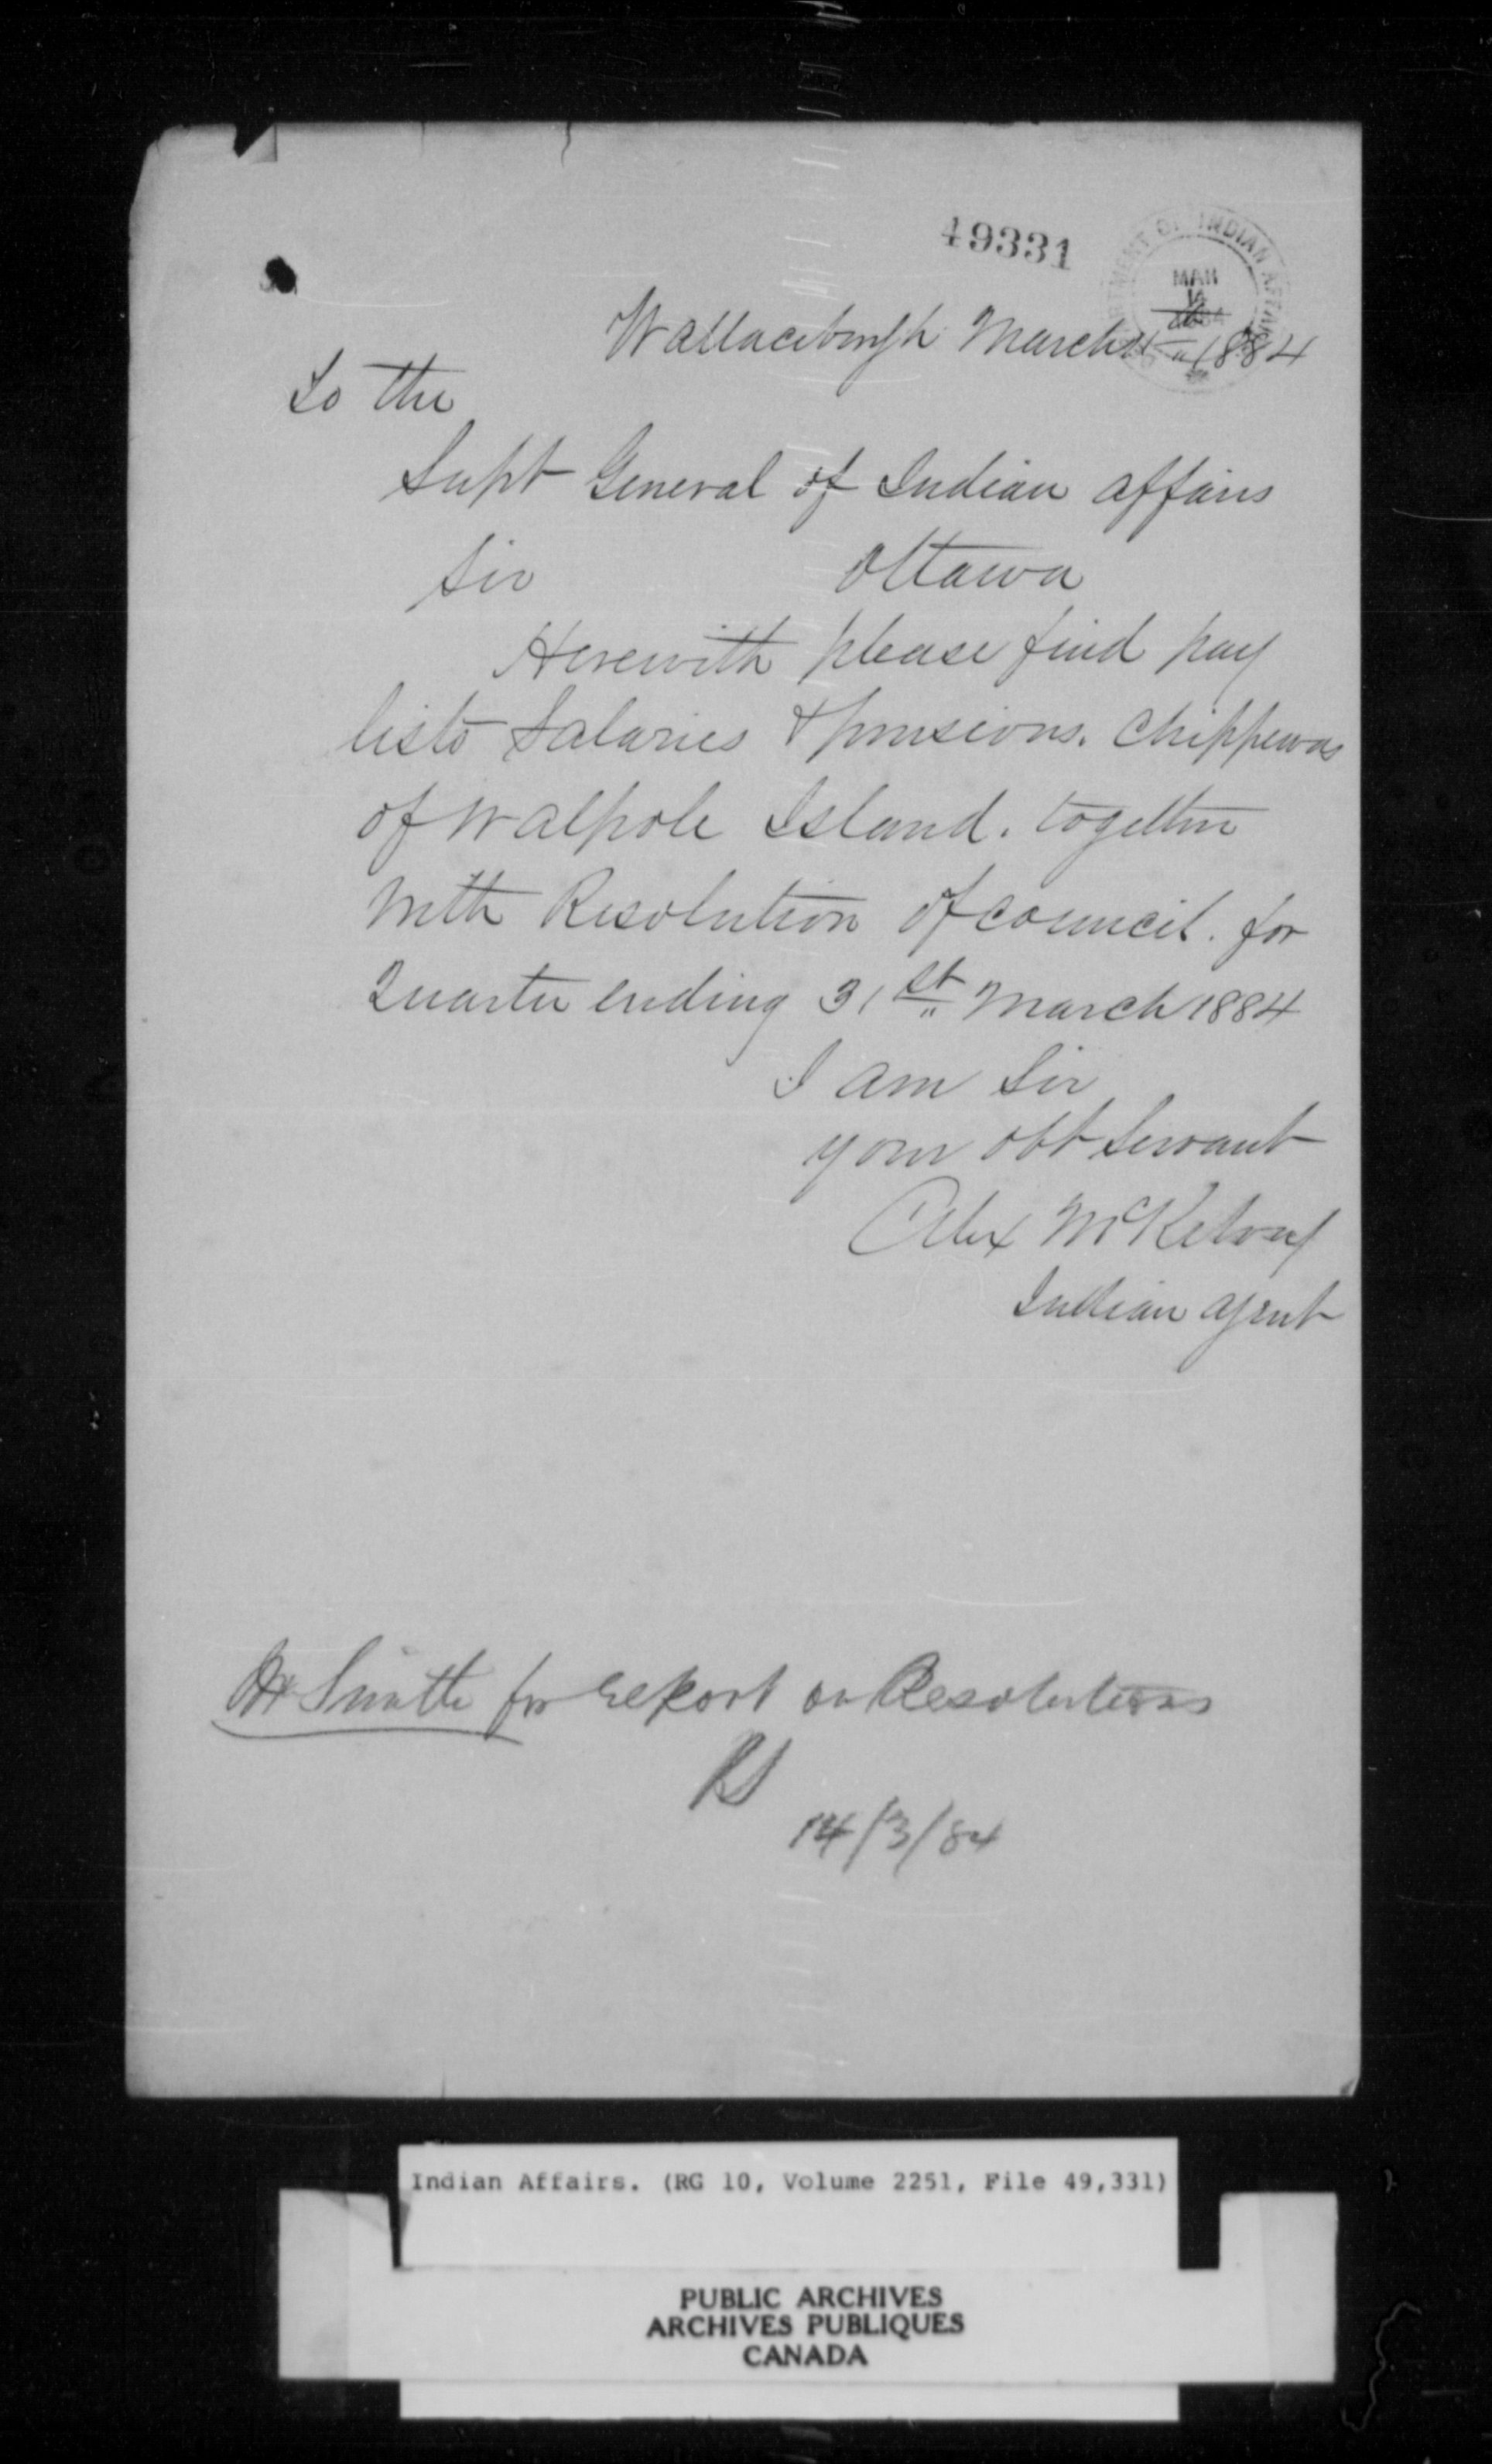 49331
DEPARTMENT OF INDIAN AFFAIRS
MAR
14
1884
Wallaceburgh March 11th 1884
To the
Supt General of Indian affairs
Sir Ottawa
Herewith please find pay
lists Salaries & pensions. Chippewas
of Walpole Island. together
With Resolution of council. for
Quarter ending 31st March 1884
I am Sir
your obt Servant
Alex McKelvey
Indian agent
Mr Smith for report on Resolutions
14/3/84
Indian Affairs. (RG 10, Volume 2251, File 49,331)
PUBLIC ARCHIVES
ARCHIVES PUBLIQUES
CANADA